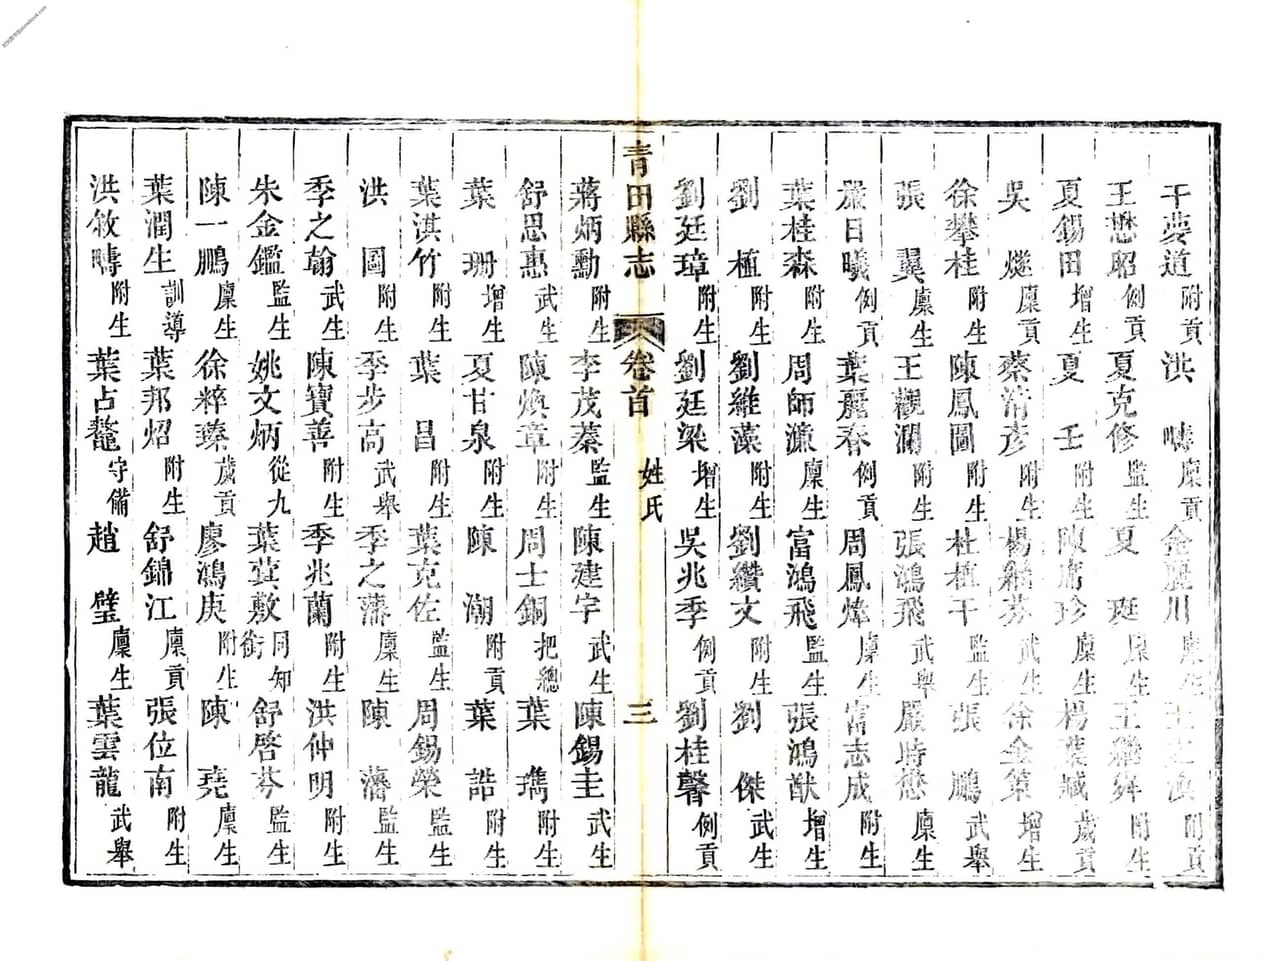 王夢道附貢 洪疇廩貢 金麗川廩生 附貢
王懋昭例貢 夏克修監生 夏珽廩生 王繼舜附生
夏錫田增生 夏壬附生 陳席珍廩生 楊葉臧歲貢
吳燧廩貢 蔡清彦附生 楊 芬武生 徐金策增生
徐攀桂附生 陳鳳圖附生 杜植干監生 張鵬武舉
張翼廩生 王觀瀾附生 張鴻飛武舉 嚴時懋廩生
嚴日曦例貢 葉麗春例貢 周鳳煒廩生 富志成附生
葉桂森附生 周師濂廩生 富鴻飛監生 張鴻猷增生
劉植附生 劉維藻附生 劉纘文附生 劉傑武生
劉廷璋附生 劉廷梁增生 吳兆季例貢 劉桂馨例貢
青田縣志 卷首 姓氏 三
蔣炳勳附生 李茂蓁監生 陳建宇武生 陳錫圭武生
舒思惠武生 陳煥章附生 周士銅把總 葉瑪附生
葉珊增生 夏甘泉附生 陳潮附貢 葉誥附生
葉淇竹附生 葉昌附生 葉克佐監生 周錫榮監生
洪圖附生 季步高武舉 季之藩廩生 陳藩監生
季之翰武生 陳寶善附生 季兆蘭附生 洪仲明附生
朱金鑑監生 姚文炳從九 葉蓂敷同知銜 舒啓芬監生
陳一鵬廩生 徐粹臻歲貢 廖鴻庚附生 陳堯廩生
葉潤生訓導 葉邦炤附生 舒錦江廩貢 張位南附生
洪敘疇附生 葉占鼇守備 趙璧廩生 葉雲龍武舉